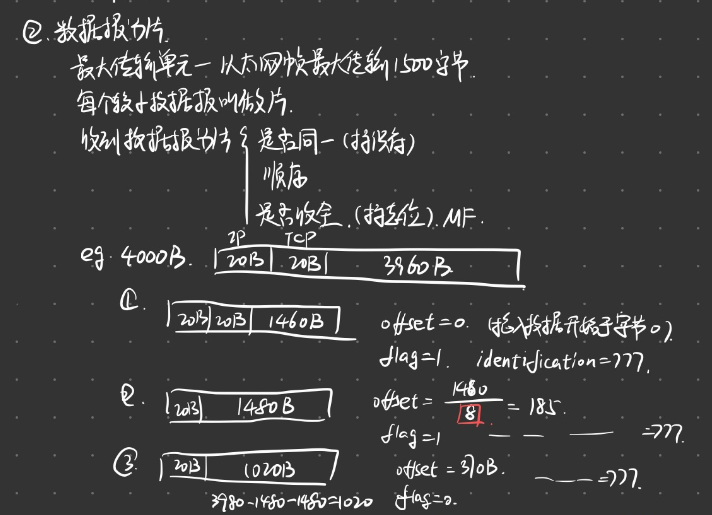 ② 数据报分片
最大传输单元 — 以太网帧最大传输1500字节.
每个较小数据报叫做片.
收到数据报分片 { 是否同一 (标识符)
顺序
是否收全. (标志位) MF.
IP TCP
eg. 4000B. 20B 20B 3960B
①. 20B 20B 1460B offset=0. (插入数据开始于字节0)
flag=1. identification=777.
②. 20B 1480B offset= 1480/8 = 185.
flag=1 — — — =777.
③. 20B 1020B offset = 370B. —— =777.
3980-1480-1480=1020 flag=0.